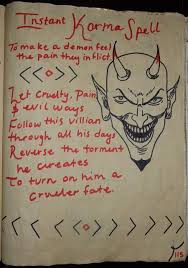 Instant
Karma Spell
To make a demon feel
the pain they inflict.
Let Cruelty, Pain
& evil ways
Follow this villian
through all his days
Reverse the torment
he creates
To turn on him a
crueler fate.
115